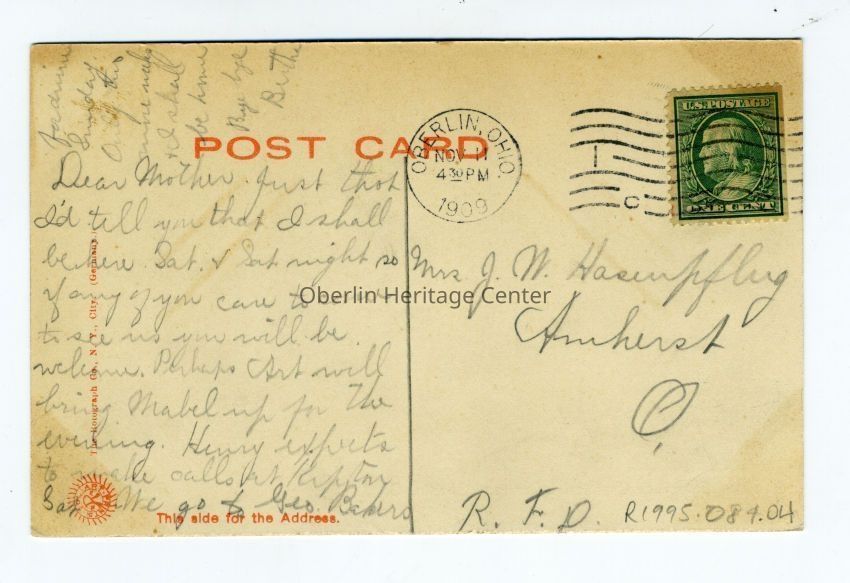 POST CARD
OBERLIN, OHIO.
NOV 11
4 30 PM
1909
U.S. POSTAGE
ONE CENT
Dear Mother. Just thot
I'd tell you that I shall
be here Sat. & Sat night so
if any of you care to
to see us you will be
welcome. Perhaps Art will
bring Mabel up for the
evening. Henry expects
to make calls at Kipton
Sat. We go to Geo. Bakers
for dinner
Sunday
this
& I shall
be home
Bye bye
Birtha
Mrs J. W. Hasenpflug
Amherst
O.
R. F. D.
R1995.089.04
Oberlin Heritage Center
The Rotograph Co., N. Y., City. (Germany.)
This side for the Address.